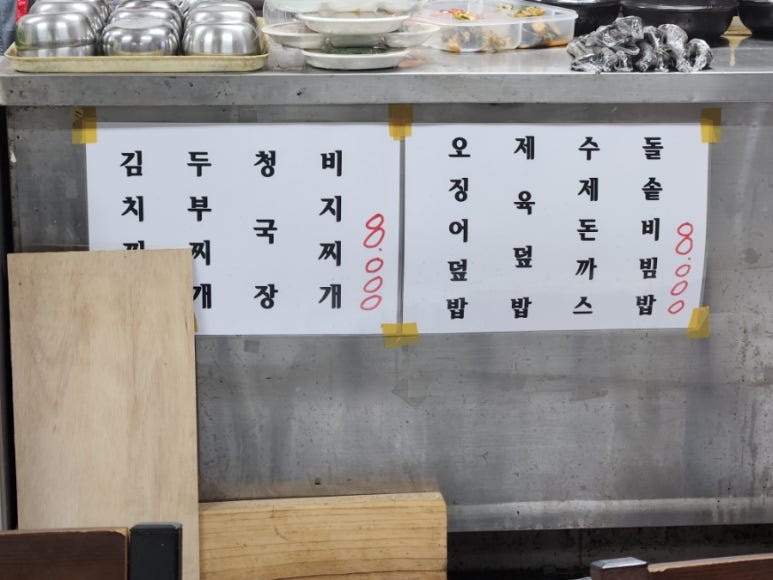 김치
두부찌개
청국장
비지찌개
8.000
오징어덮밥
제육덮밥
수제돈까스
돌솥비빔밥
8.000